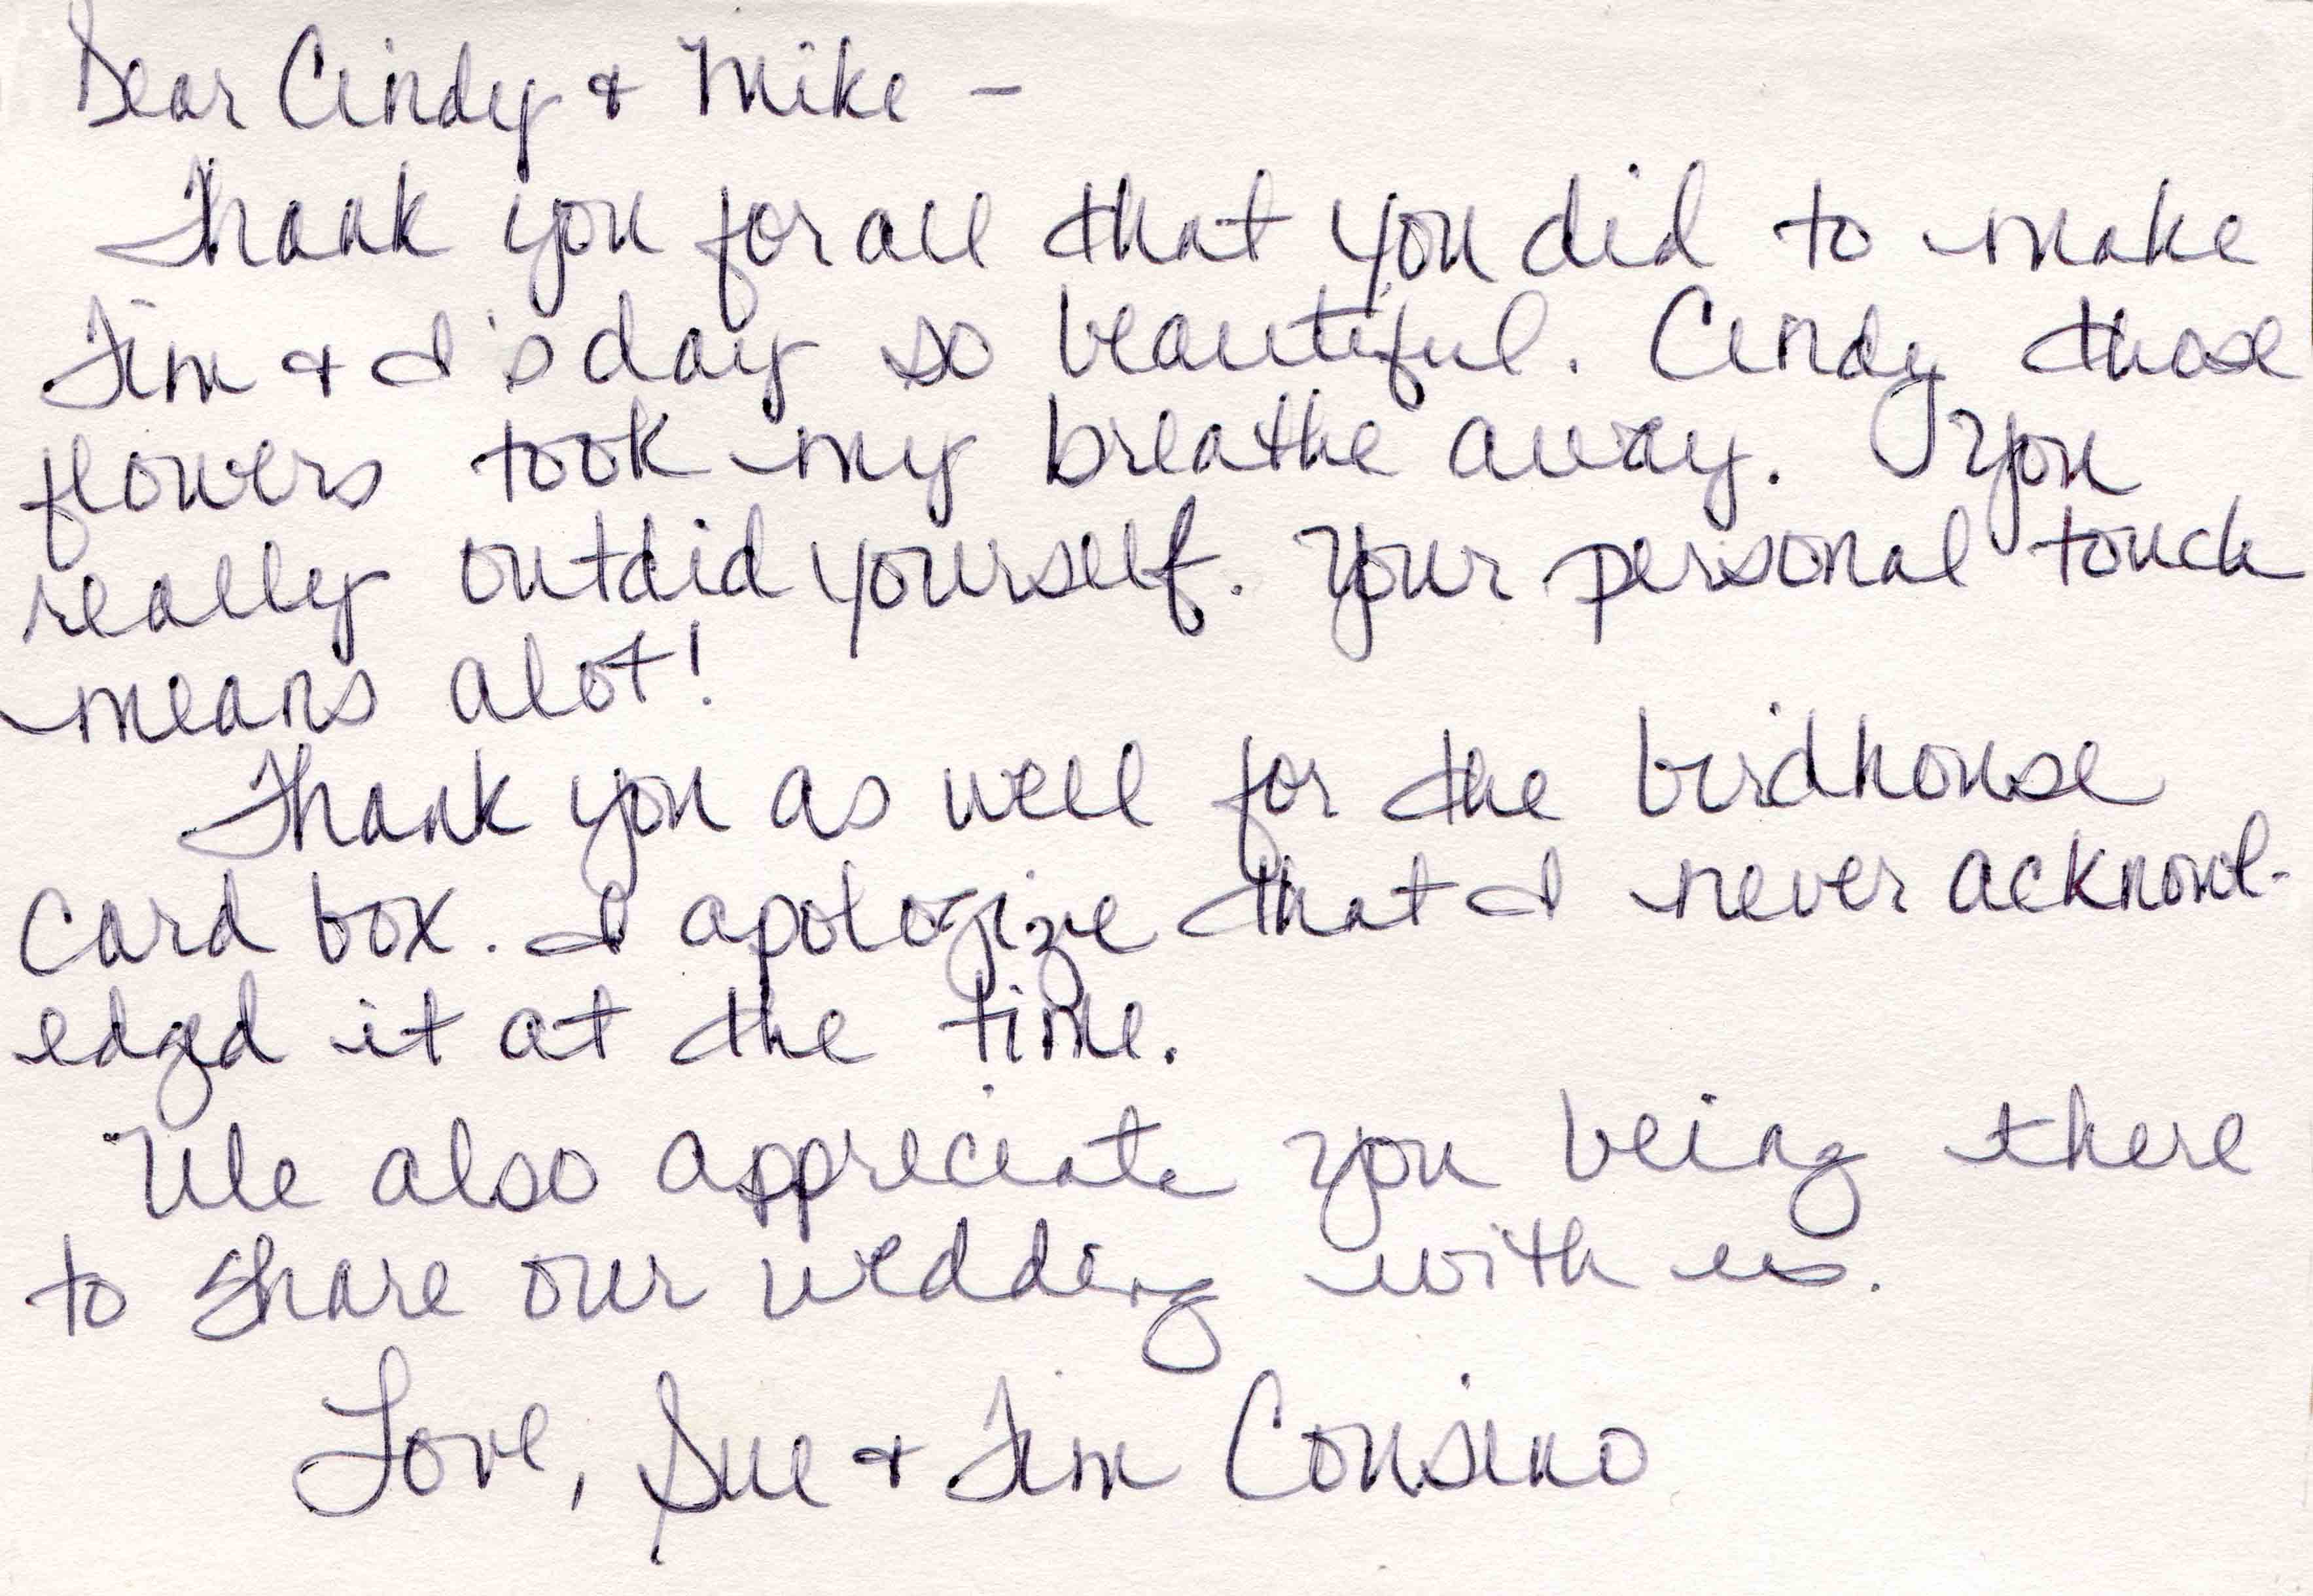 Dear Cindy & Mike -
Thank you for all that you did to make
Jim & I's day so beautiful. Cindy those
flowers took my breathe away. You
really outdid yourself. Your personal touch
means alot!
Thank you as well for the birdhouse
card box. I apologize that I never acknowl-
edged it at the time.
We also appreciate you being there
to share our wedding with us.
Love, Sue & Jim Cousino